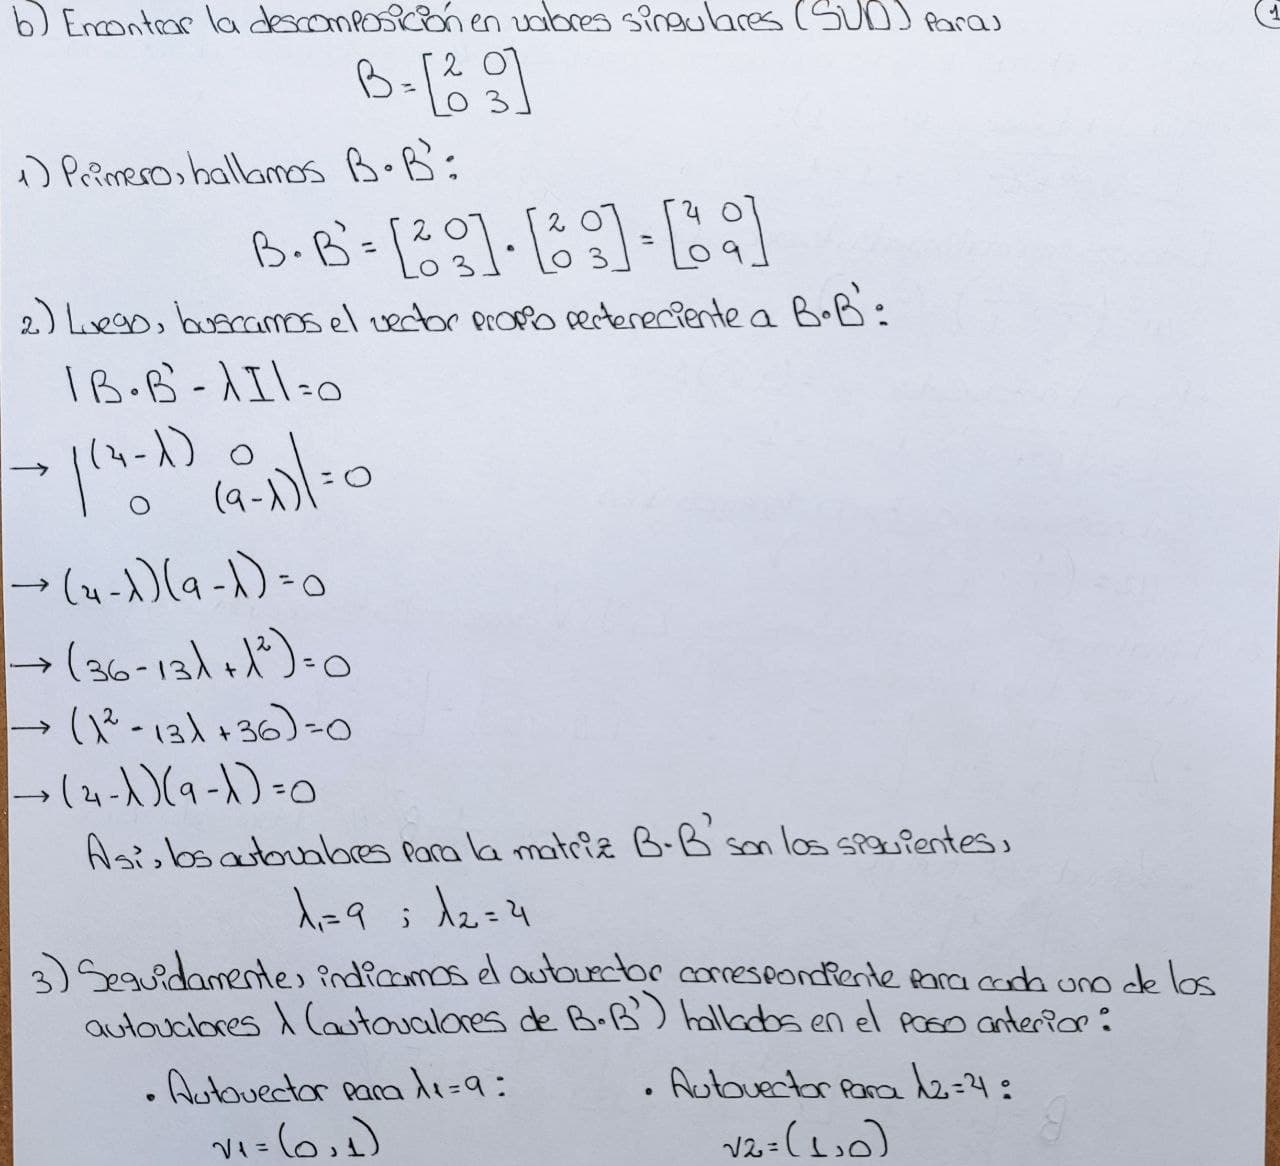 b) Encontrar la descomposición en valores singulares (SVD) para, 1
B = [2 0
0 3]
1) Primero, hallamos B·B':
B·B' = [2 0 0 3] · [2 0 0 3] = [4 0 0 9]
2) Luego, buscamos el vector propio perteneciente a B·B':
|B·B' - λI| = 0
→ |(4-λ) 0
0 (9-λ)| = 0
→ (4-λ)(9-λ) = 0
→ (36 - 13λ + λ²) = 0
→ (λ² - 13λ + 36) = 0
→ (4-λ)(9-λ) = 0
Así, los autovalores para la matriz B·B' son los siguientes,
λ1 = 9 ; λ2 = 4
3) Seguidamente, indicamos el autovector correspondiente para cada uno de los
autovalores λ (autovalores de B·B') hallados en el paso anterior:
• Autovector para λ1 = 9: • Autovector para λ2 = 4:
v1 = (0,1) v2 = (1,0)